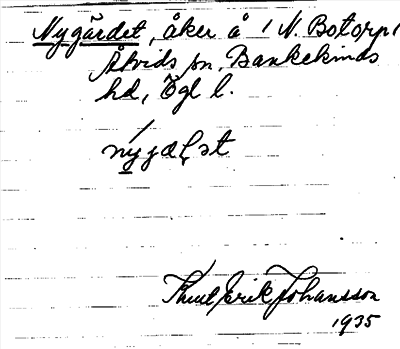 Nygärdet, åker å 1 N. Botorp,
Åtvids sn, Bankekinds
hd, Ögl l.
Knut Erik Johansson
1935